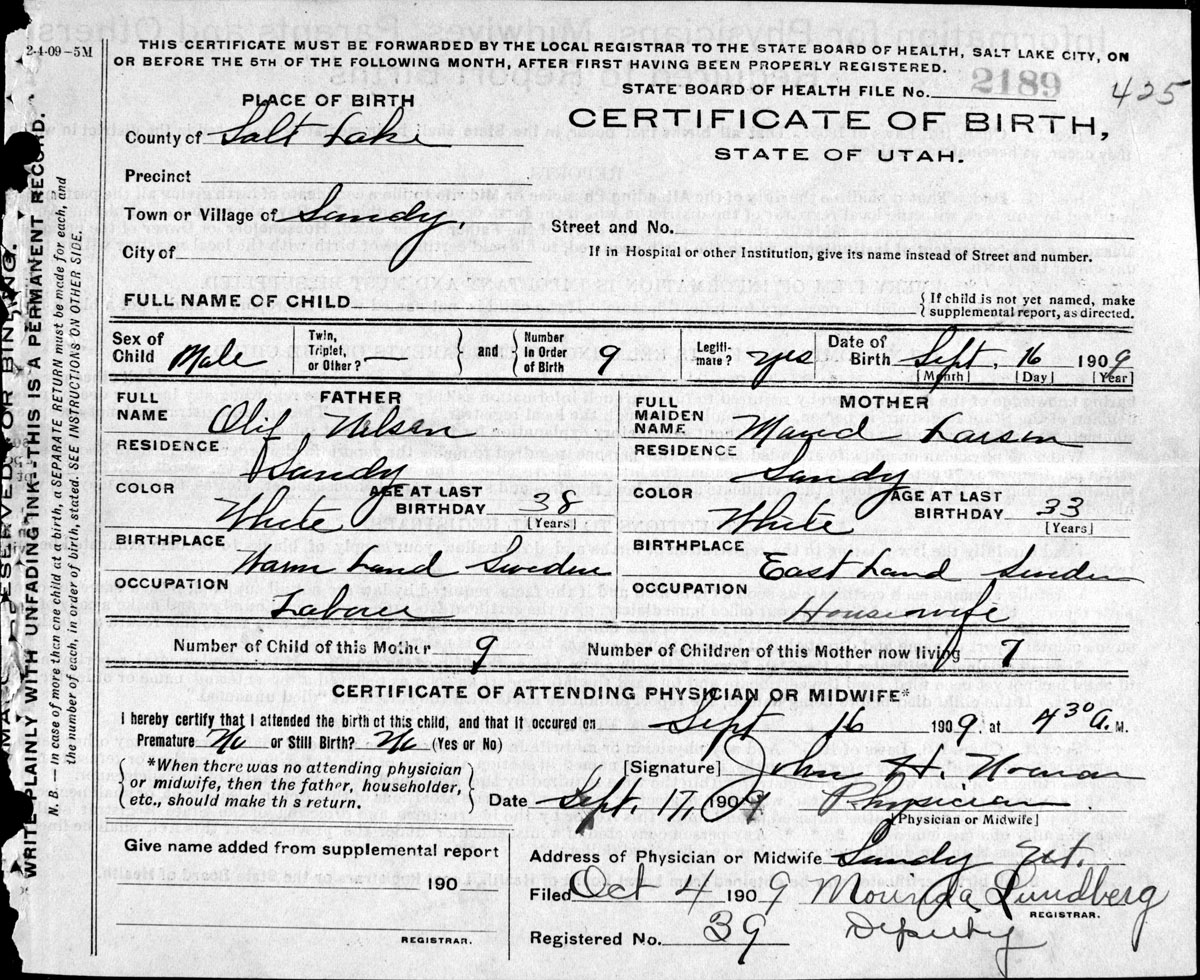 2-4-09-5M
THIS CERTIFICATE MUST BE FORWARDED BY THE LOCAL REGISTRAR TO THE STATE BOARD OF HEALTH, SALT LAKE CITY, ON
OR BEFORE THE 5TH OF THE FOLLOWING MONTH, AFTER FIRST HAVING BEEN PROPERLY REGISTERED.
STATE BOARD OF HEALTH FILE No. 2189
425
PLACE OF BIRTH
CERTIFICATE OF BIRTH,
STATE OF UTAH.
County of Salt Lake
Precinct
Town or Village of Sandy.
Street and No.
City of
If in Hospital or other Institution, give its name instead of Street and number.
FULL NAME OF CHILD
{ If child is not yet named, make
supplemental report, as directed.
Sex of Child Male
Twin, Triplet, or Other? } and { Number in Order of Birth 9
Legiti-mate? yes
Date of Birth Sept. 16 1909
[Month) [Day] [Year]
FATHER
FULL NAME Olif Nelson
RESIDENCE Sandy
COLOR White
AGE AT LAST BIRTHDAY 38
[Years]
BIRTHPLACE Warm Land Sweden
OCCUPATION Laborer
MOTHER
FULL MAIDEN NAME Larson
RESIDENCE Sandy
COLOR White
AGE AT LAST BIRTHDAY 33
[Years]
BIRTHPLACE East Land Sweden
OCCUPATION Housewife
Number of Child of this Mother 9
Number of Children of this Mother now living 7
CERTIFICATE OF ATTENDING PHYSICIAN OR MIDWIFE*
I hereby certify that I attended the birth of this child, and that it occured on Sept 16 1909, at 4 30 A. M.
Premature? No or Still Birth? No (Yes or No)
{ *When there was no attending physician
or midwife, then the father, householder,
etc., should make this return. }
[Signature] John H.
Date Sept. 17, 1909 Physician
[Physician or Midwife]
Give name added from supplemental report
190
REGISTRAR.
Address of Physician or Midwife Sandy Ut.
Filed Oct 4 1909 Lundberg
REGISTRAR.
Registered No. 39 Deputy
RESERVED FOR BINDING.
WRITE PLAINLY WITH UNFADING INK-THIS IS A PERMANENT RECORD.
N. B. — In case of more than one child at a birth, a SEPARATE RETURN must be made for each, and
the number of each, in order of birth, stated. SEE INSTRUCTIONS ON OTHER SIDE.